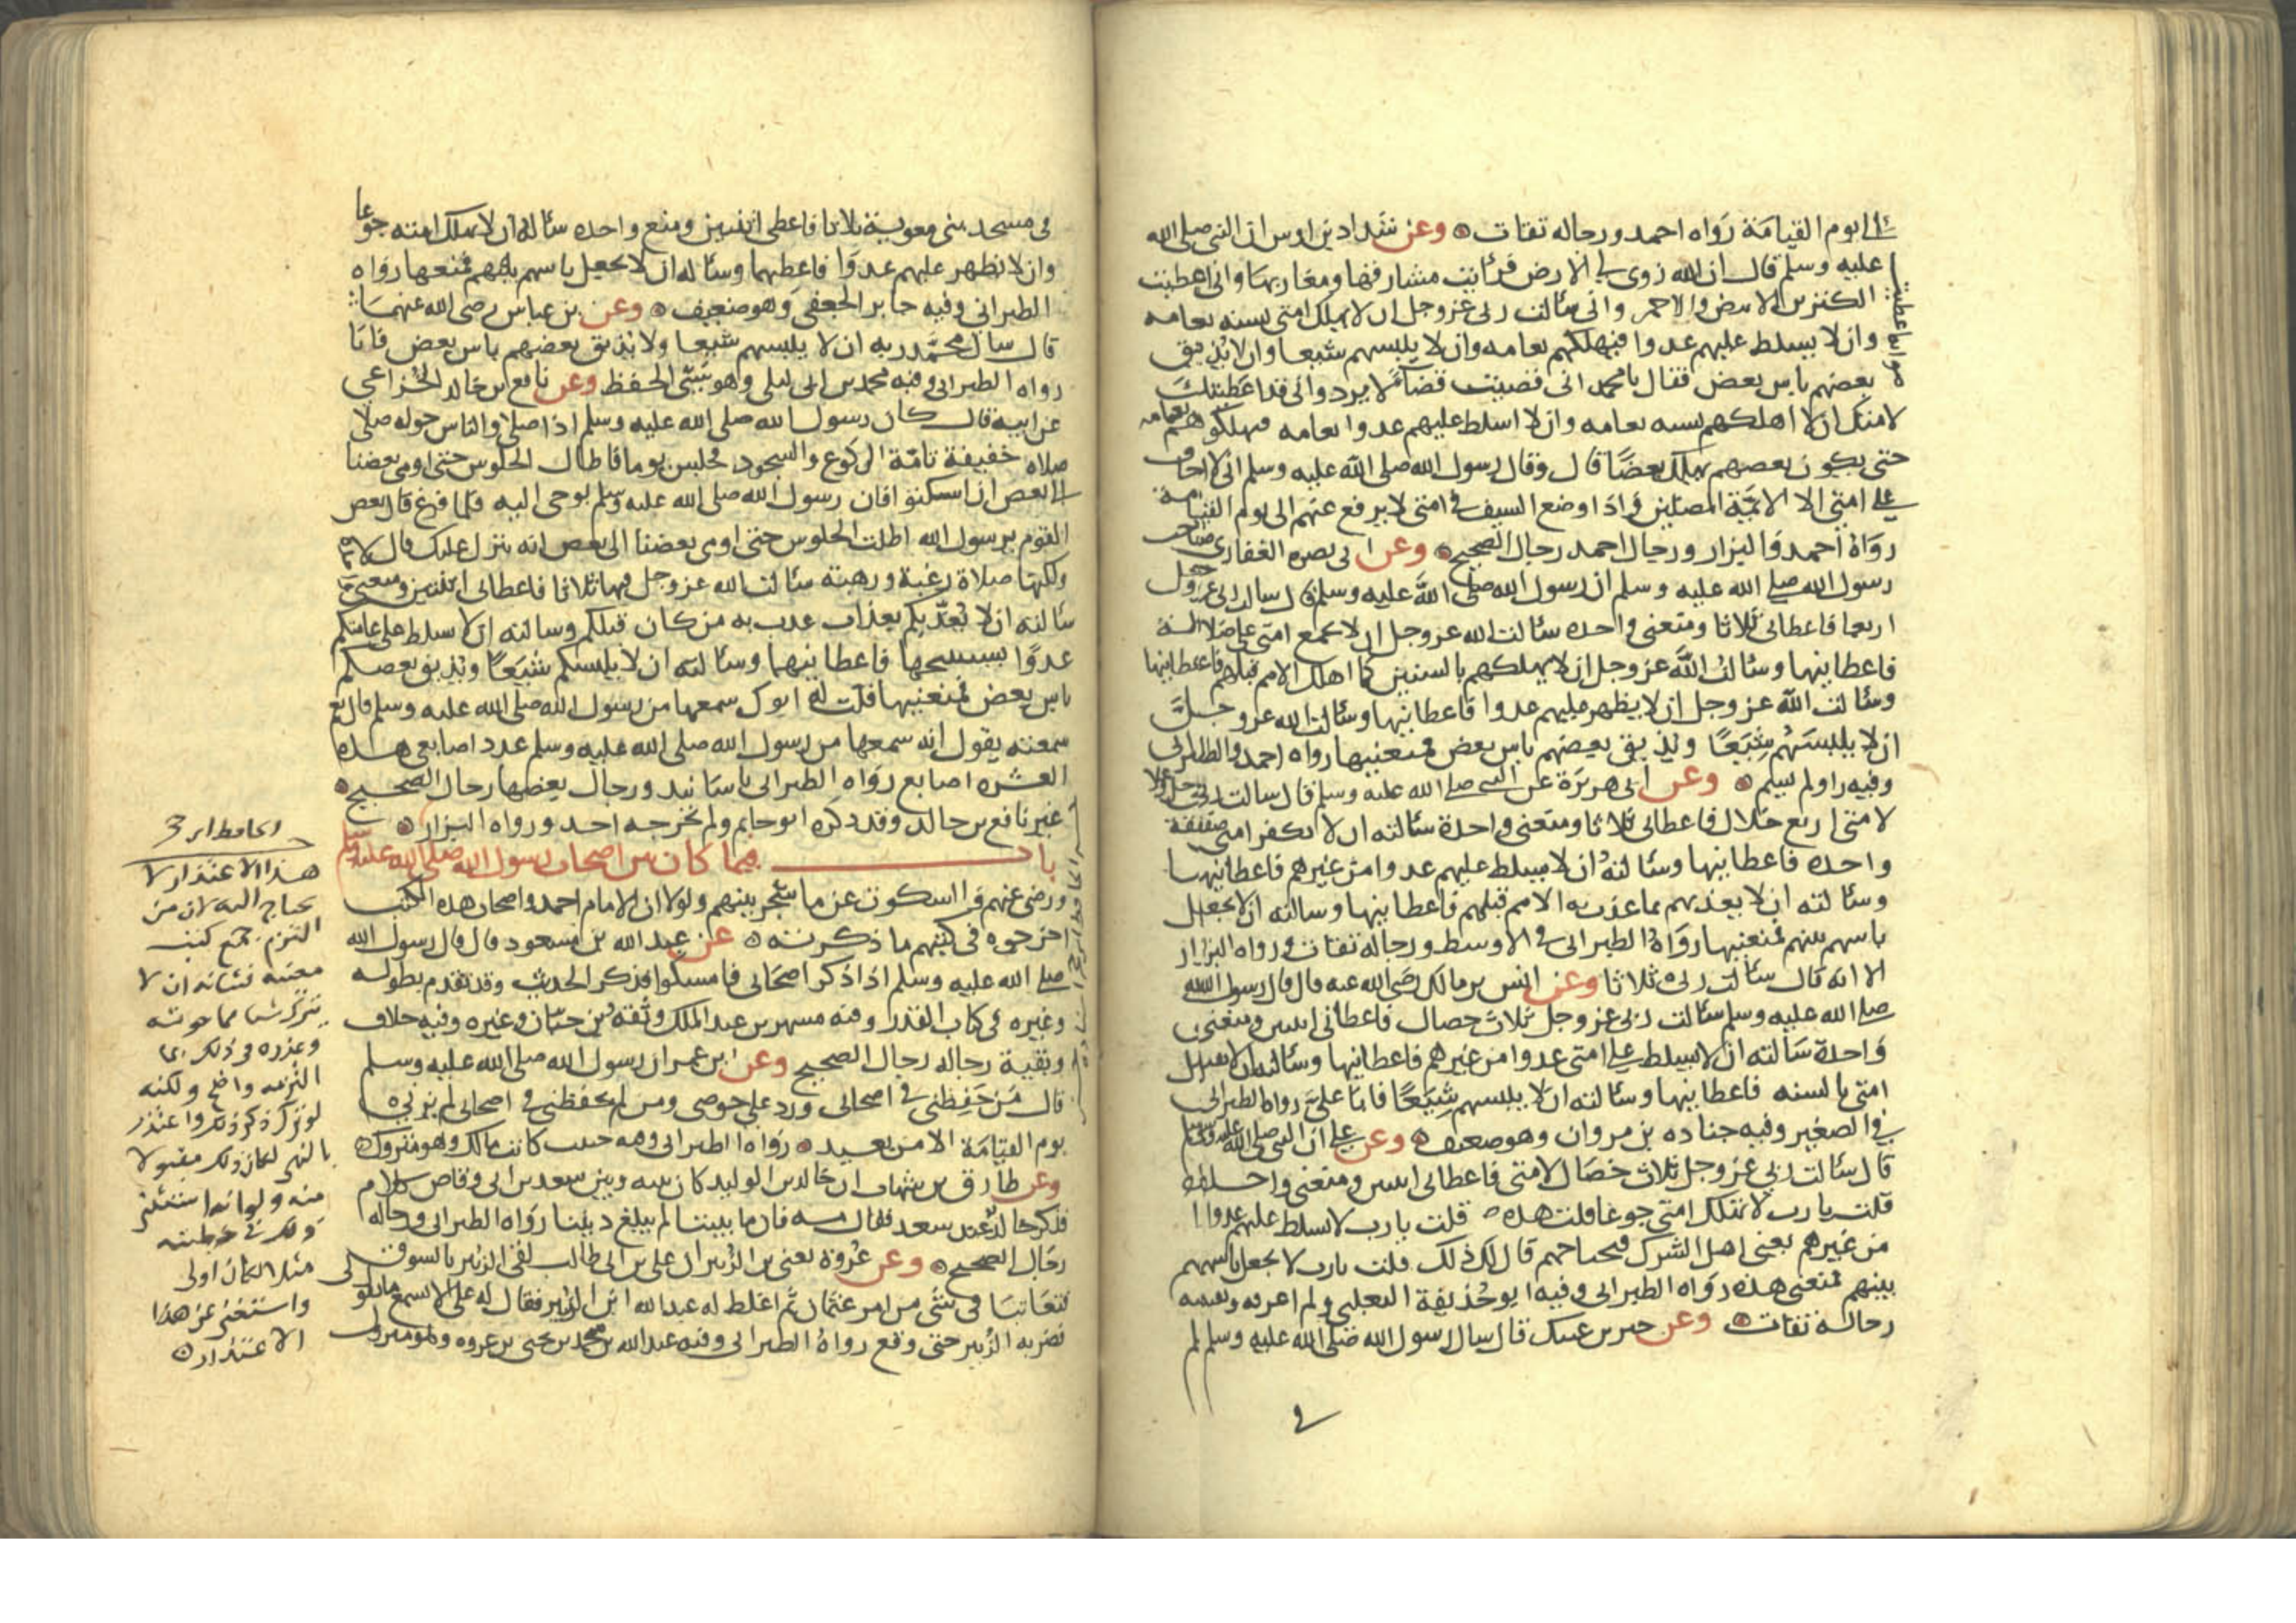 الى يوم القيامة رواه احمد ورجاله ثقات وعن شداد بن اوس ان النبي صلى الله
عليه وسلم قال ان الله زوى لي الارض فرأيت مشارقها ومغاربها واني اعطيت
الكنزين الابيض والاحمر واني سالت ربي عز وجل ان لا يهلك امتي بسنه بعامه
وان لا يسلط عليهم عدوا فيهلكهم بعامه وان لا يلبسهم شيعا وان لا يذيق
بعضهم باس بعض فقال يا محمد اني قضيت قضاء لا يرد واني قد اعطيتك
لامتك ان لا اهلكهم بسنه بعامه وان لا اسلط عليهم عدوا بعامه فيهلكوهم بعامه
حتى يكون بعضهم يهلك بعضا قال وقال رسول الله صلى الله عليه وسلم اني لا اخاف
على امتي الا الائمة المضلين واذا وضع السيف في امتي لا يرفع عنهم الى يوم القيامة
رواه احمد والبزار ورجال احمد رجال الصحيح وعن ابي بصره الغفاري صاحب
رسول الله صلى الله عليه وسلم ان رسول الله صلى الله عليه وسلم قال سالت ربي عز وجل
اربعا فاعطاني ثلاثا ومنعني واحده سالت الله عز وجل ان لا يجمع امتي على ضلالة
فاعطانيها وسالت الله عز وجل ان لا يهلكهم بالسنين كما اهلك الامم قبلهم فاعطانيها
وسالت الله عز وجل ان لا يظهر عليهم عدوا فاعطانيها وسالت الله عز وجل
ان لا يلبسهم شيعا ويذيق بعضهم باس بعض فمنعنيها رواه احمد والطبراني
وفيه راو لم يسم وعن ابي هريرة عن النبي صلى الله عليه وسلم قال سالت ربي عز وجل
لامتي اربع خلال فاعطاني ثلاثا ومنعني واحدة سالته ان لا تكفر امتي صفقة
واحده فاعطانيها وسالته ان لا يسلط عليهم عدوا من غيرهم فاعطانيها
وسالته ان لا يعذبهم بما عذب به الامم قبلهم فاعطانيها وسالته ان لا يجعل
باسهم بينهم فمنعنيها رواه الطبراني في الاوسط ورجاله ثقات ورواه البزار
الا انه قال سالت ربي ثلاثا وعن انس بن مالك رضي الله عنه قال قال رسول الله
صلى الله عليه وسلم سالت ربي عز وجل ثلاث خصال فاعطاني اثنتين ومنعني
واحدة سالته ان لا يسلط على امتي عدوا من غيرهم فاعطانيها وسالته ان لا يقتل
امتي بالسنه فاعطانيها وسالته ان لا يلبسهم شيعا فابا علي رواه الطبراني
في الصغير وفيه جناده بن مروان وهو ضعيف وعن علي ان النبي صلى الله عليه وسلم
قال سالت ربي عز وجل ثلاث خصال لامتي فاعطاني اثنتين ومنعني واحدة
قلت يا رب لا تهلك امتي جوعا قلت هذه قلت يا رب لا تسلط عليهم عدوا
من غيرهم يعني اهل الشرك فيجتاحهم قال لك ذلك قلت يا رب لا تجعل باسهم
بينهم فمنعني هذه رواه الطبراني وفيه ابو حذيفة الثعلبي ولم اعرفه وبقيه
رجاله ثقات وعن جبر بن عتيك قال سال رسول الله صلى الله عليه وسلم
في
في مسجد بني معوية ثلاثا فاعطى اثنتين ومنع واحده ساله ان لا يهلك امته جوعا
وان لا يظهر عليهم عدوا فاعطيهما وساله ان لا يجعل باسهم بينهم فمنعها رواه
الطبراني وفيه جابر الجعفي وهو ضعيف وعن بن عباس رضي الله عنهما
قال سال محمد ربه ان لا يلبسهم شيعا ولا يذيق بعضهم باس بعض فابا
رواه الطبراني وفيه محمد بن ابي ليلى وهو سيئ الحفظ وعن نافع بن خالد الخزاعي
عن ابيه قال كان رسول الله صلى الله عليه وسلم اذا صلا والناس حوله صلى
صلاه خفيفة تامة الركوع والسجود فجلس يوما فاطال الجلوس حتى اومى بعضنا
الى بعض ان اسكتوا فان رسول الله صلى الله عليه وسلم يوحى اليه فلما فرغ قال بعض
القوم يرسول الله اطلت الجلوس حتى اومى بعضنا الى بعض انه ينزل عليك قال لا
ولكنها صلاة رغبة ورهبة سالت الله عز وجل فيها ثلاثا فاعطاني اثنتين ومنعني
سالته ان لا يعذبكم بعذاب عذب به من كان قبلكم وسالته ان لا يسلط على عامتكم
عدوا يستبيحها فاعطانيهما وسالته ان لا يلبسكم شيعا ويذيق بعضكم
باس بعض فمنعنيها قلت له ابوك سمعها من رسول الله صلى الله عليه وسلم قال نعم
سمعته يقول انه سمعها من رسول الله صلى الله عليه وسلم عدد اصابعي هذه
العشره اصابع رواه الطبراني باسانيد ورجال بعضها رجال الصحيح
غير نافع بن خالد وقد ذكره ابو حاتم ولم يخرجه احد ورواه البزار
باب فيما كان بين اصحاب رسول الله صلى الله عليه وسلم
ورضي عنهم والسكوت عن ما شجر بينهم ولولا ان الامام احمد واصحاب هذه الكتب
اخرجوه في كتبهم ما ذكرته عن عبد الله بن مسعود قال قال رسول الله
صلى الله عليه وسلم اذا ذكر اصحابي فامسكوا فذكر الحديث وقد تقدم بطوله
وغيره في كتاب القدر وفيه مسهر بن عبد الملك وثقه بن حبان وغيره وفيه خلاف
وبقية رجاله رجال الصحيح وعن ابن عمر ان رسول الله صلى الله عليه وسلم
قال من حفظني في اصحابي ورد علي حوضي ومن لم يحفظني في اصحابي لم يرني
يوم القيامة الا من بعيد رواه الطبراني وفيه حبيب كاتب مالك وهو متروك
وعن طارق بن شهاب ان خالد بن الوليد كان بينه وبين سعد بن ابي وقاص كلام
فذكر خالد عند سعد فقال مه فان ما بيننا لم يبلغ ديننا رواه الطبراني ورجاله
رجال الصحيح وعن عروة يعني بن الزبير ان علي بن ابي طالب لقي الزبير بالسوق
فتعاتبا في شئ من امر عثمان ثم اغلظ له عبد الله ابن الزبير فقال له علي الا تسمع ما يقول لي
فضربه الزبير حتى وقع رواه الطبراني وفيه عبد الله بن محمد بن يحيى بن عروه وهو متروك
الحافظ ابن
هذا الاعتذار لا
يحتاج اليه لان من
التزم جمع كتب
معينه فشانه ان لا
يترك شيا مما حوته
وعذره في ذلك
واضح ولكنه
لو ترك ذكر ذلك واعتذر
لكان ذلك مقبولا
منه
مثلا لكان اولى
واستغنى عن هذا
الاعتذار